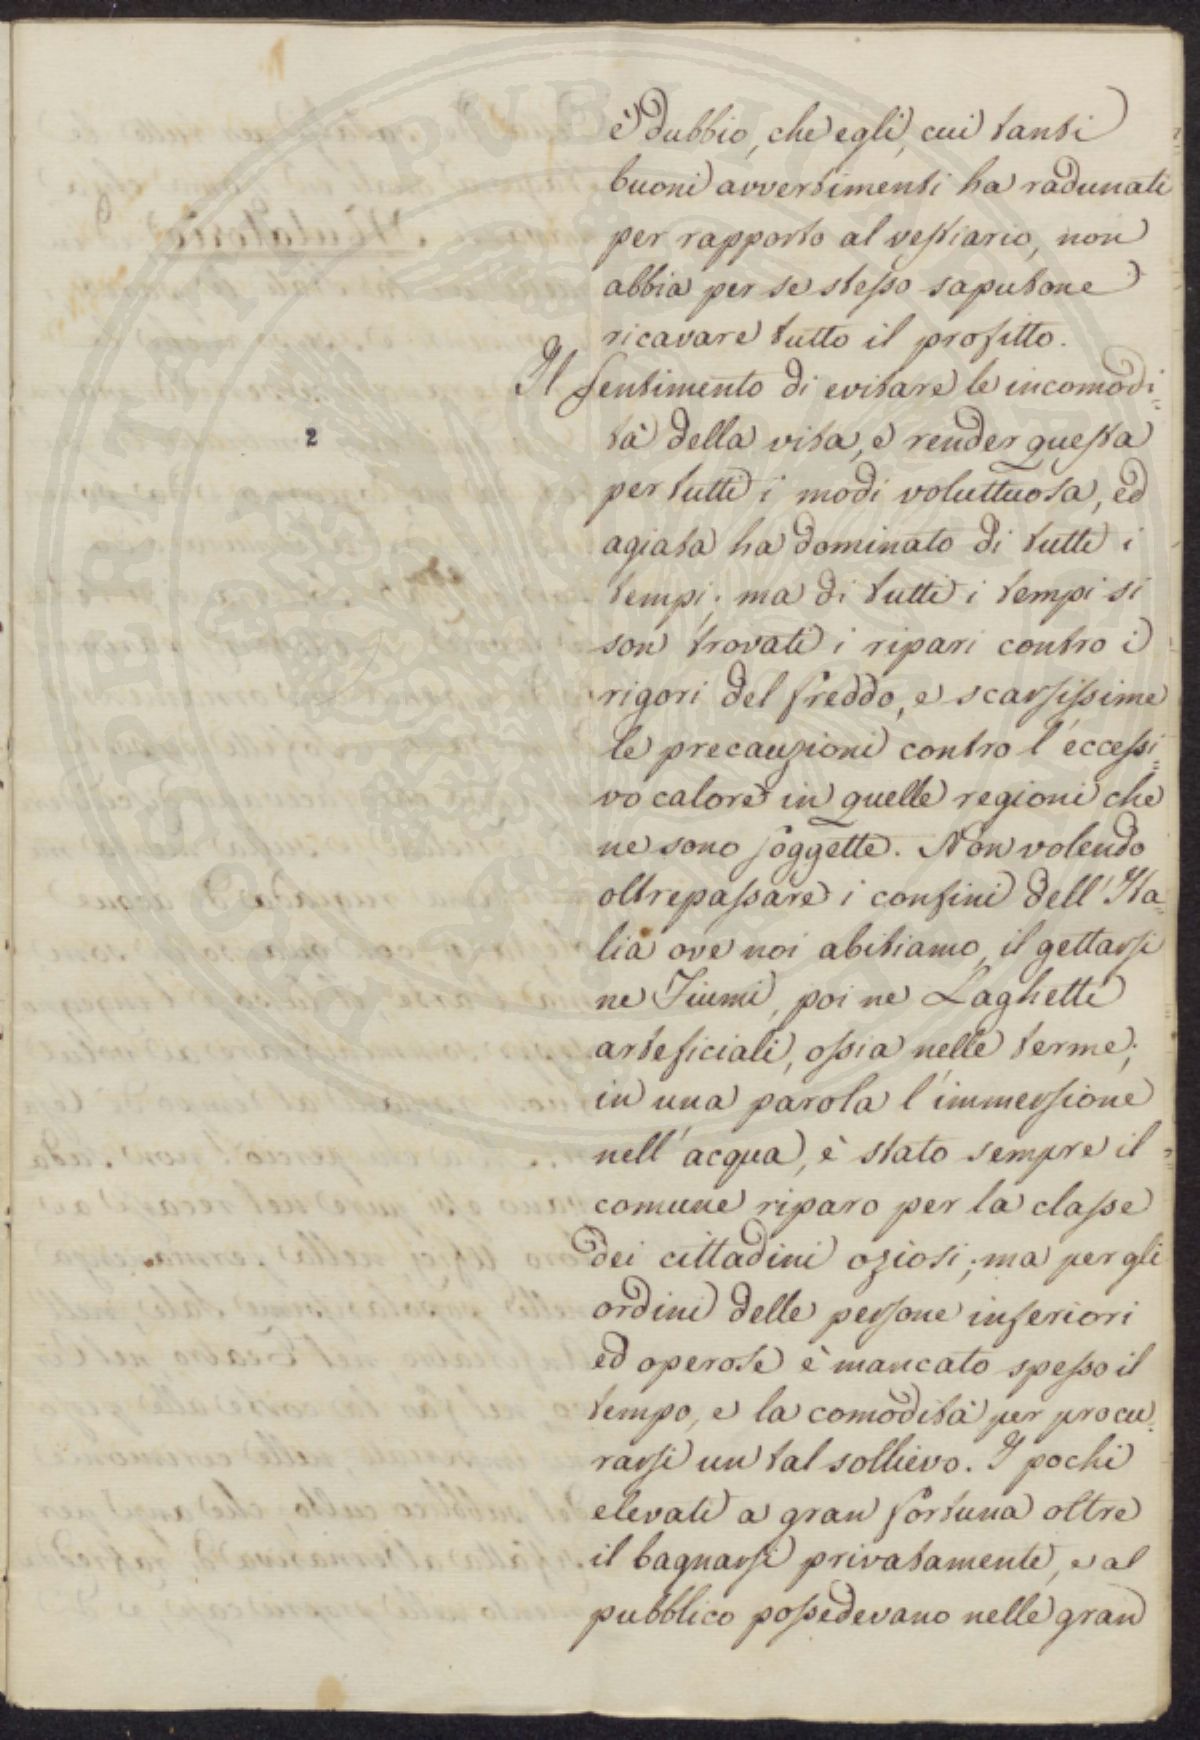 è dubbio, che egli, cui tanti
buoni avvertimenti ha radunati
per rapporto al vestiario, non
abbia per se stesso saputone
ricavare tutto il profitto.
Il sentimento di evitare le incomodi=
2
tà della vita, e render questa
per tutti i modi voluttuosa, ed
agiata ha dominato di tutti i
tempi; ma di tutti i tempi si
son trovati i ripari contro i
rigori del freddo, e scarsissime
le precauzioni contro l'eccessi=
vo calore in quelle regioni che
ne sono soggette. Non volendo
oltrepassare i confini dell'Ita=
lia ove noi abitiamo, il gettarsi
ne Fiumi, poi ne Laghetti
arteficiali, ossia nelle terme;
in una parola l'immersione
nell'acqua, è stato sempre il
comune riparo per la classe
dei cittadini oziosi; ma per gli
ordini delle persone inferiori
ed operose è mancato spesso il
tempo, e la comodità per procu=
rarsi un tal sollievo. I pochi
elevati a gran fortuna oltre
il bagnarsi privatamente, e al
pubblico possedevano nelle gran